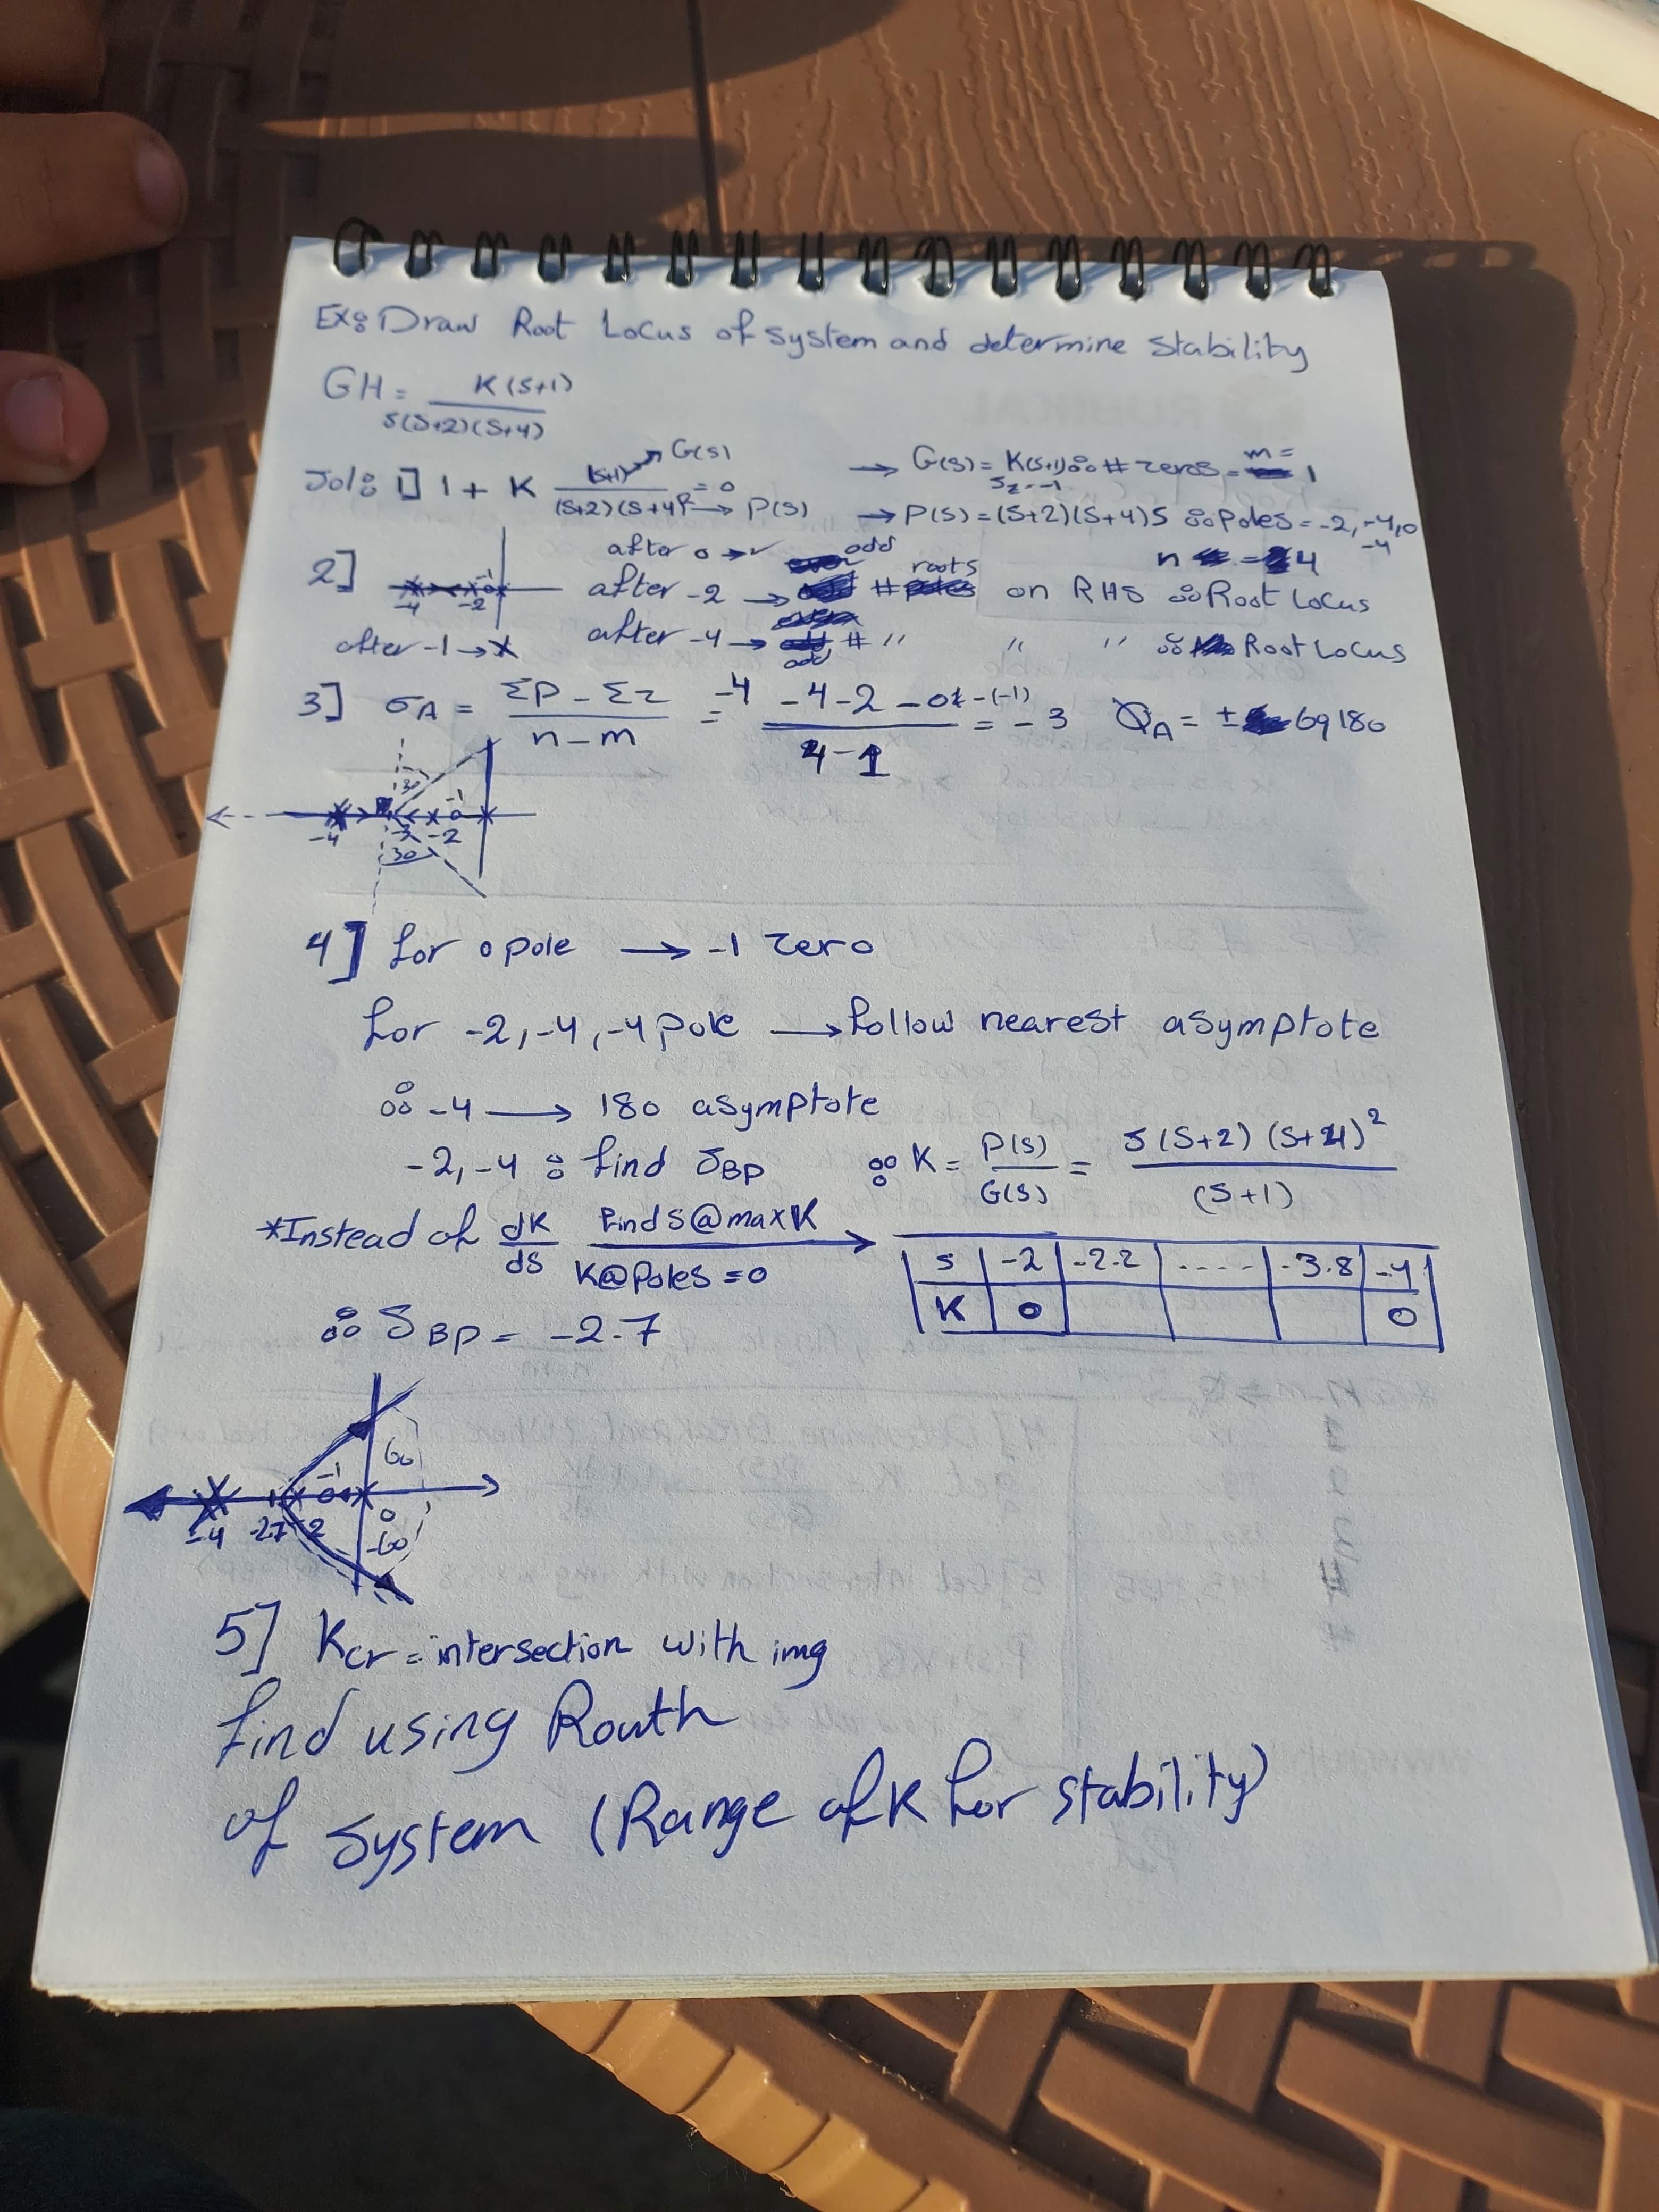 Ex: Draw Root Locus of system and determine stability
GH = K(S+1)
S(S+2)(S+4)
Sol: 1] 1 + K (S+1) → G(S) = 0
(S+2)(S+4)² → P(S)
→ G(S) = K(S+1) ∴ # zeros = m = 1
S_z = -1
→ P(S) = (S+2)(S+4)S ∴ Poles = -2, -4, 0
-4
n = 4
2] -4 -2 -1
after 0 → ✓ odd
after -2 → # roots on RHS ∴ Root Locus
after -1 → X after -4 → odd # " " " ∴ Root Locus
3] σA = ΣP - Σz / n - m = -4 -4 -2 -0 -(-1) / 4-1 = -3 ∅A = ± 60, 180
30 -1
-4 -3 -2
30
4] for 0 pole → -1 zero
for -2, -4, -4 pole → follow nearest asymptote
∴ -4 → 180 asymptote
-2, -4 : find SBP ∴ K = P(S) / G(S) = S(S+2)(S+4)² / (S+1)
*Instead of dK/dS Find S@maxK → K@Poles = 0
S -2 -2.2 .... -3.8 -4
K 0 0
∴ SBP = -2.7
60
-1
-4 -2.7 -2 0
-60
5] Kcr = intersection with img
find using Routh
of system (Range of K for stability)